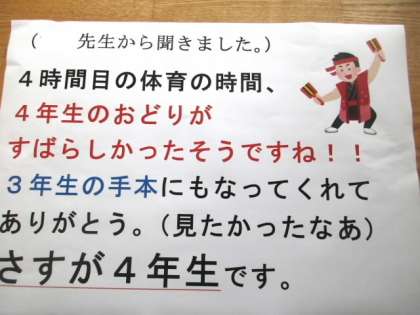 (　　先生から聞きました。)
４時間目の体育の時間、
４年生のおどりが
すばらしかったそうですね！！
３年生の手本にもなってくれて
ありがとう。(見たかったなあ)
さすが４年生です。